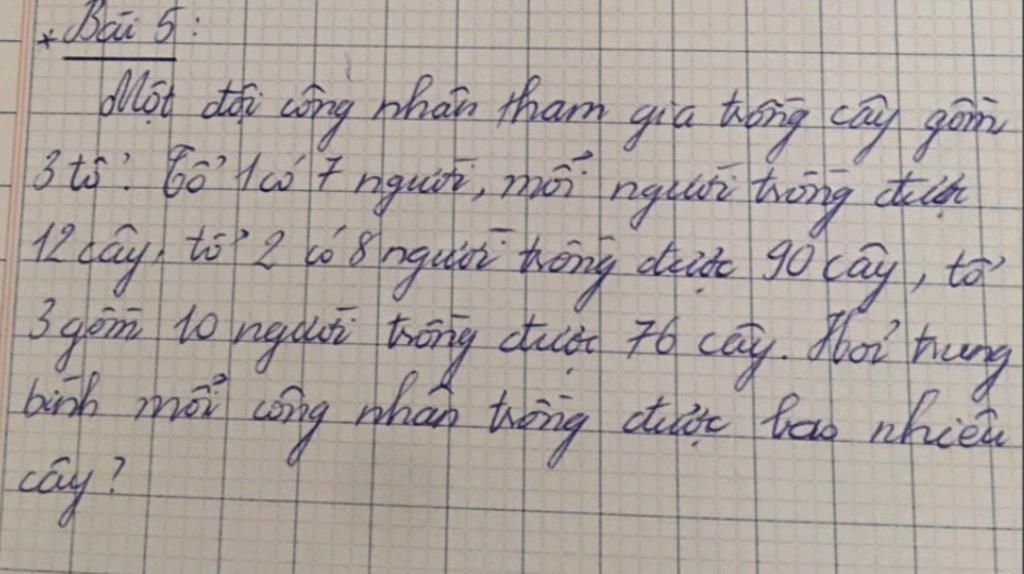 * Bài 5:
Một đội công nhân tham gia trồng cây gồm
3 tổ. Tổ 1 có 7 người, mỗi người trồng được
12 cây, tổ 2 có 8 người trồng được 90 cây, tổ
3 gồm 10 người trồng được 76 cây. Hỏi trung
bình mỗi công nhân trồng được bao nhiêu
cây?